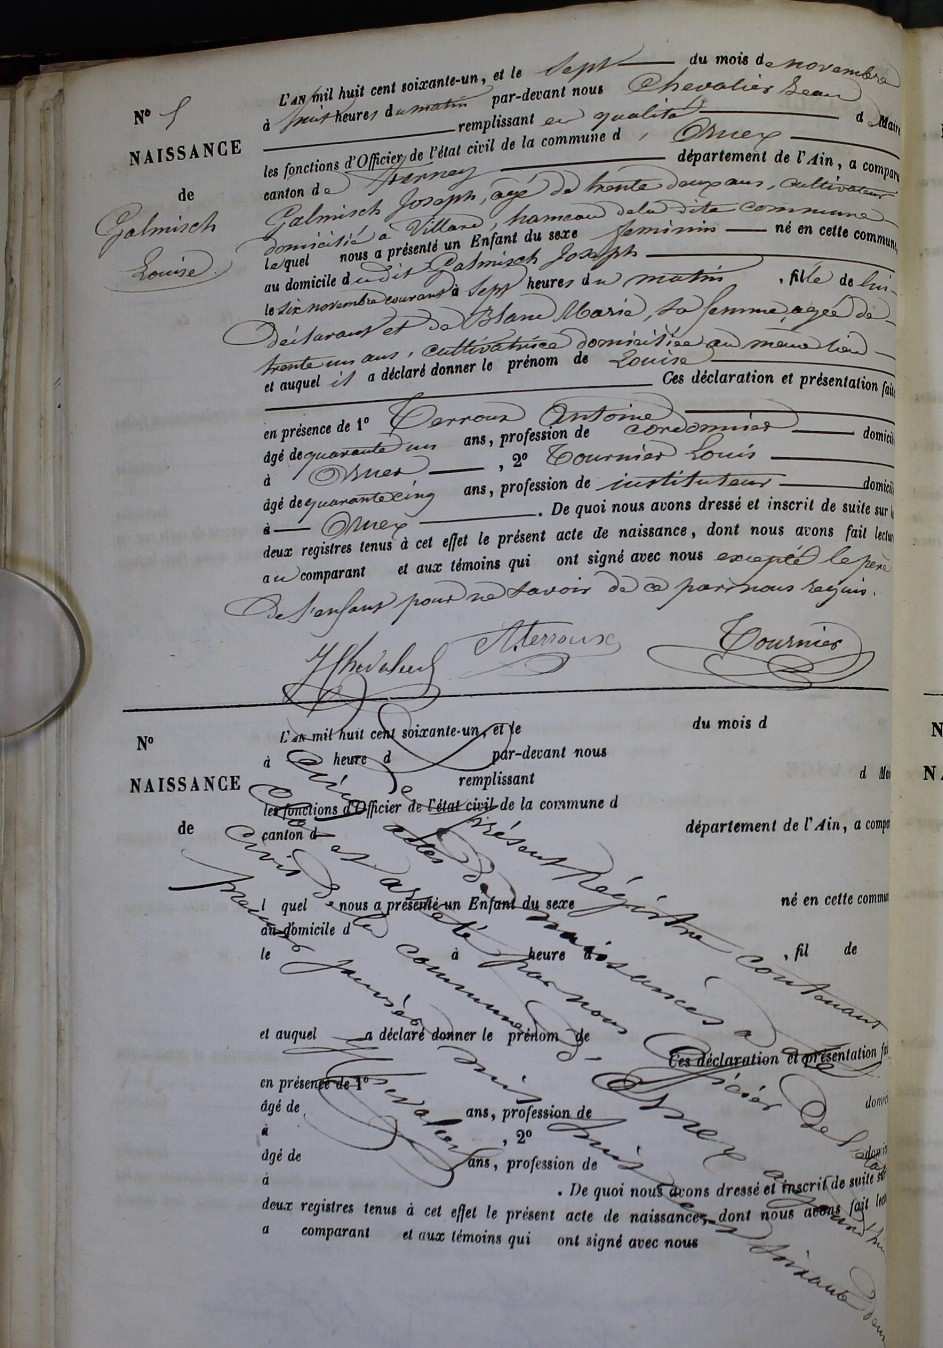 N° 5
NAISSANCE
de
Galmisch
Louise.
L'AN mil huit cent soixante-un, et le sept du mois de novembre
à huit heures du matin par-devant nous Chevalier Jean
remplissant en qualité de Maire
les fonctions d'Officier de l'état civil de la commune d'Ornex
canton de Ferney département de l'Ain, a compar
Galmisch Joseph, agé de trente deux ans, cultivateur
domicilié à Villard, hameau de la dite commune
lequel nous a présenté un Enfant du sexe feminin né en cette commun
au domicile dudit Galmisch Joseph
le six novembre courant à sept heures du matin, fille de lui
déclarant et de Blanc Marie, sa femme, agée de
trente un ans, cultivatrice domiciliée au même lieu
et auquel il a déclaré donner le prénom de Louise
Ces déclaration et présentation faite
en présence de 1° Terroux Antoine
âgé de quarante un ans, profession de cordonnier domicil
à Ornex, 2° Tournier Louis
âgé de quarante cinq ans, profession de instituteur domicil
à Ornex. De quoi nous avons dressé et inscrit de suite sur l
deux registres tenus à cet effet le présent acte de naissance, dont nous avons fait lectur
au comparant et aux témoins qui ont signé avec nous excepté le père
de l'enfant pour ne savoir de ce par nous requis.
J Chevalier A. Terroux Tournier
N°
NAISSANCE
de
L'AN mil huit cent soixante-un, et le du mois d
à heure d par-devant nous
remplissant d Mai
les fonctions d'Officier de l'état civil de la commune d
canton d département de l'Ain, a compar
l quel nous a présenté un Enfant du sexe né en cette commun
au domicile d
le à heure d , fil de
et auquel a déclaré donner le prénom de
Ces déclaration et présentation fai
en présence de 1°
âgé de ans, profession de domici
à , 2°
âgé de ans, profession de domici
à . De quoi nous avons dressé et inscrit de suite su
deux registres tenus à cet effet le présent acte de naissance, dont nous avons fait lect
a comparant et aux témoins qui ont signé avec nous
le présent Régistre contenant
cinq actes de naissances a été
clos et arrêté par nous Officier de l'état
civil de la commune d'Ornex aujourd'hui
premier janvier mil huit cent soixante deux
J Chevalier
N
NA